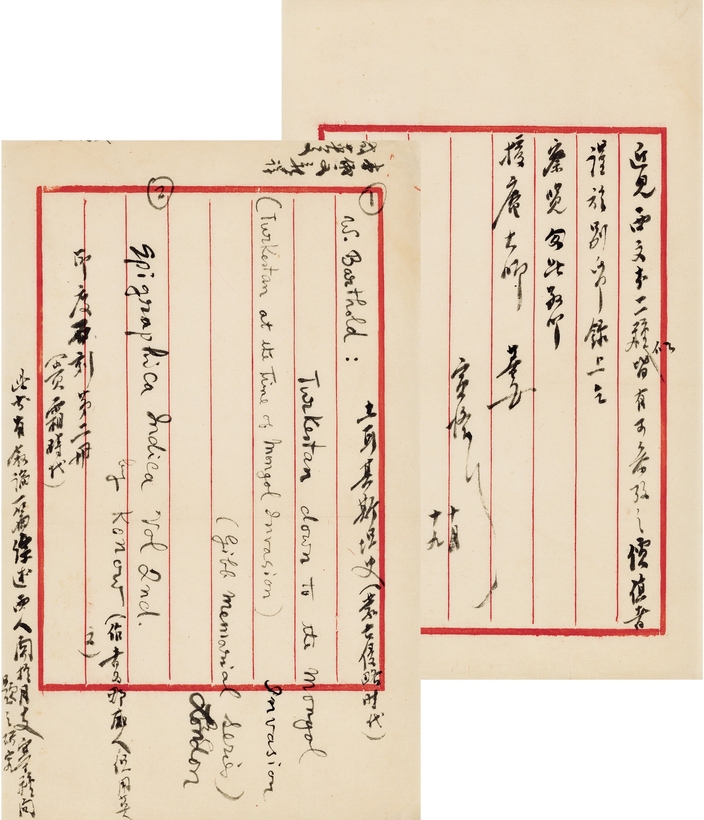 近見西文書二種似皆有可參考之價值者
謹於別紙錄上乞
察覽匆此敬叩
援庵大師 著安
寅恪
十月
十九
① W. Barthold: 土耳其斯坦史(蒙古侵略時代)
Turkestan down to the Mongol Invasion
(Turkestan at the time of Mongol Invasion)
(Gibb memorial series)
London
② Epigraphica Indica Vol 2nd.
by Konow (作者乃那威人但用英文)
印度石刻第二冊
(貴霜時代)
此書有叙論一篇 述西人關於月支 種問題之研究